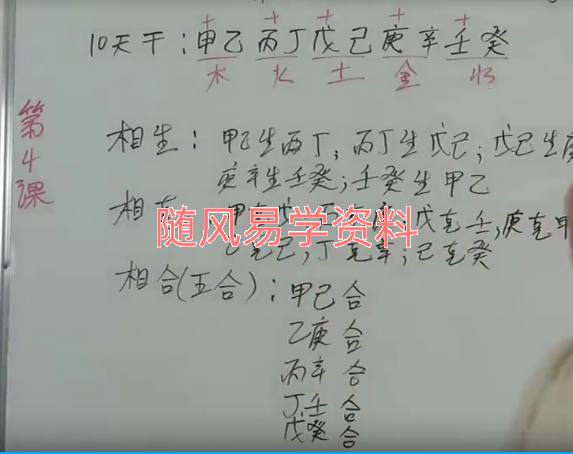 + + + + +
10天干:甲乙丙丁戊己庚辛壬癸
木 火 土 金 水
第4课
相生:甲乙生丙丁,丙丁生戊己;戊己生庚
庚辛生壬癸;壬癸生甲乙
相克 戊克壬,庚克甲
随风易学资料
乙克己,丁克辛;己克癸
相合(五合):甲己合
乙庚合
丙辛合
丁壬合
戊癸合